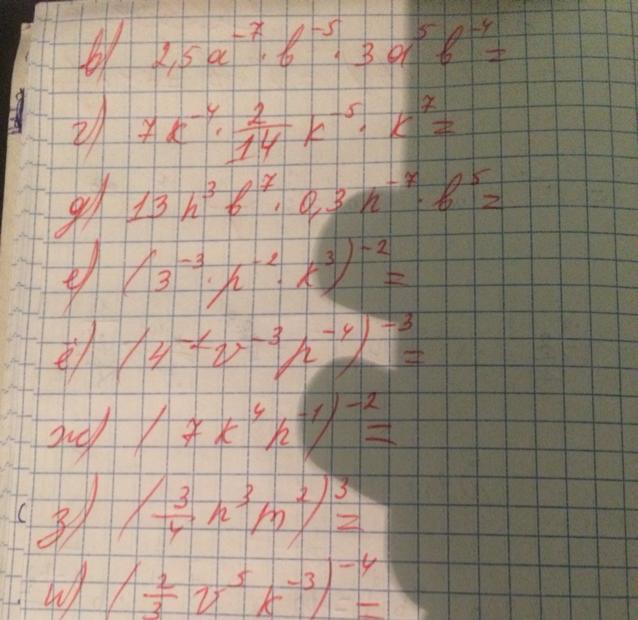 в) 2,5 a⁻⁷ · b⁻⁵ · 3 a⁵ b⁻⁴ =
г) 7 k⁻⁴ · 2/14 k⁻⁵ · k⁷ =
д) 13 n³ b⁷ · 0,3 n⁻⁷ · b⁵ =
е) (3⁻³ · p⁻² · k³)⁻² =
ё) (4⁻¹ v⁻³ p⁻⁴)⁻³ =
ж) (7 k⁴ p⁻¹)⁻² =
з) (3/4 n³ m²)³ =
и) (2/3 v⁵ k⁻³)⁻⁴ =